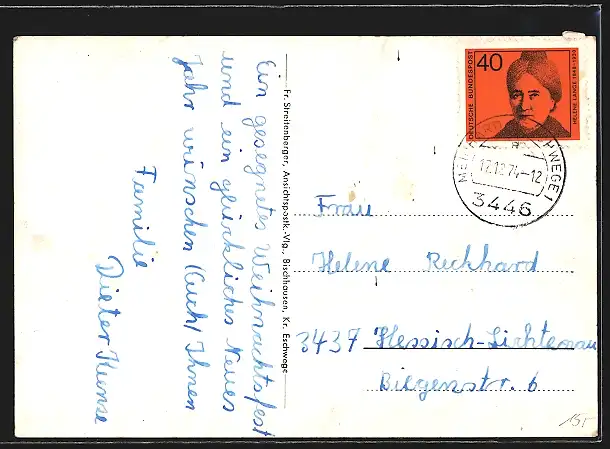 Ein gesegnetes Weihnachtsfest
und ein glückliches Neues
Jahr wünschen (Euch) Ihnen
Familie
Dieter Kunse
Fr. Streitenberger, Ansichtspostk.-Vlg., Bischhausen, Kr. Eschwege
40
DEUTSCHE BUNDESPOST
HELENE LANGE 1848-1930
17.12.74-12
3446
Frau
Helene Reckhard
3437 Hessisch-Lichtenau
Biegenstr. 6
15,-